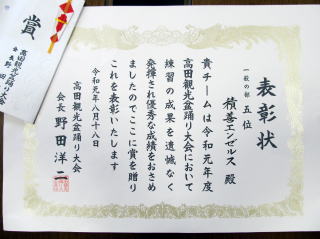 表彰状
一般の部 五位
積善エンゼルス 殿
貴チームは令和元年度
高田観光盆踊り大会において
練習の成果を遺憾なく
発揮され優秀な成績をおさめ
ましたのでここに賞を贈り
これを表彰いたします
令和元年八月十八日
高田観光盆踊り大会
会長 野田洋二
賞
高田観光盆踊り大会
会長 野田